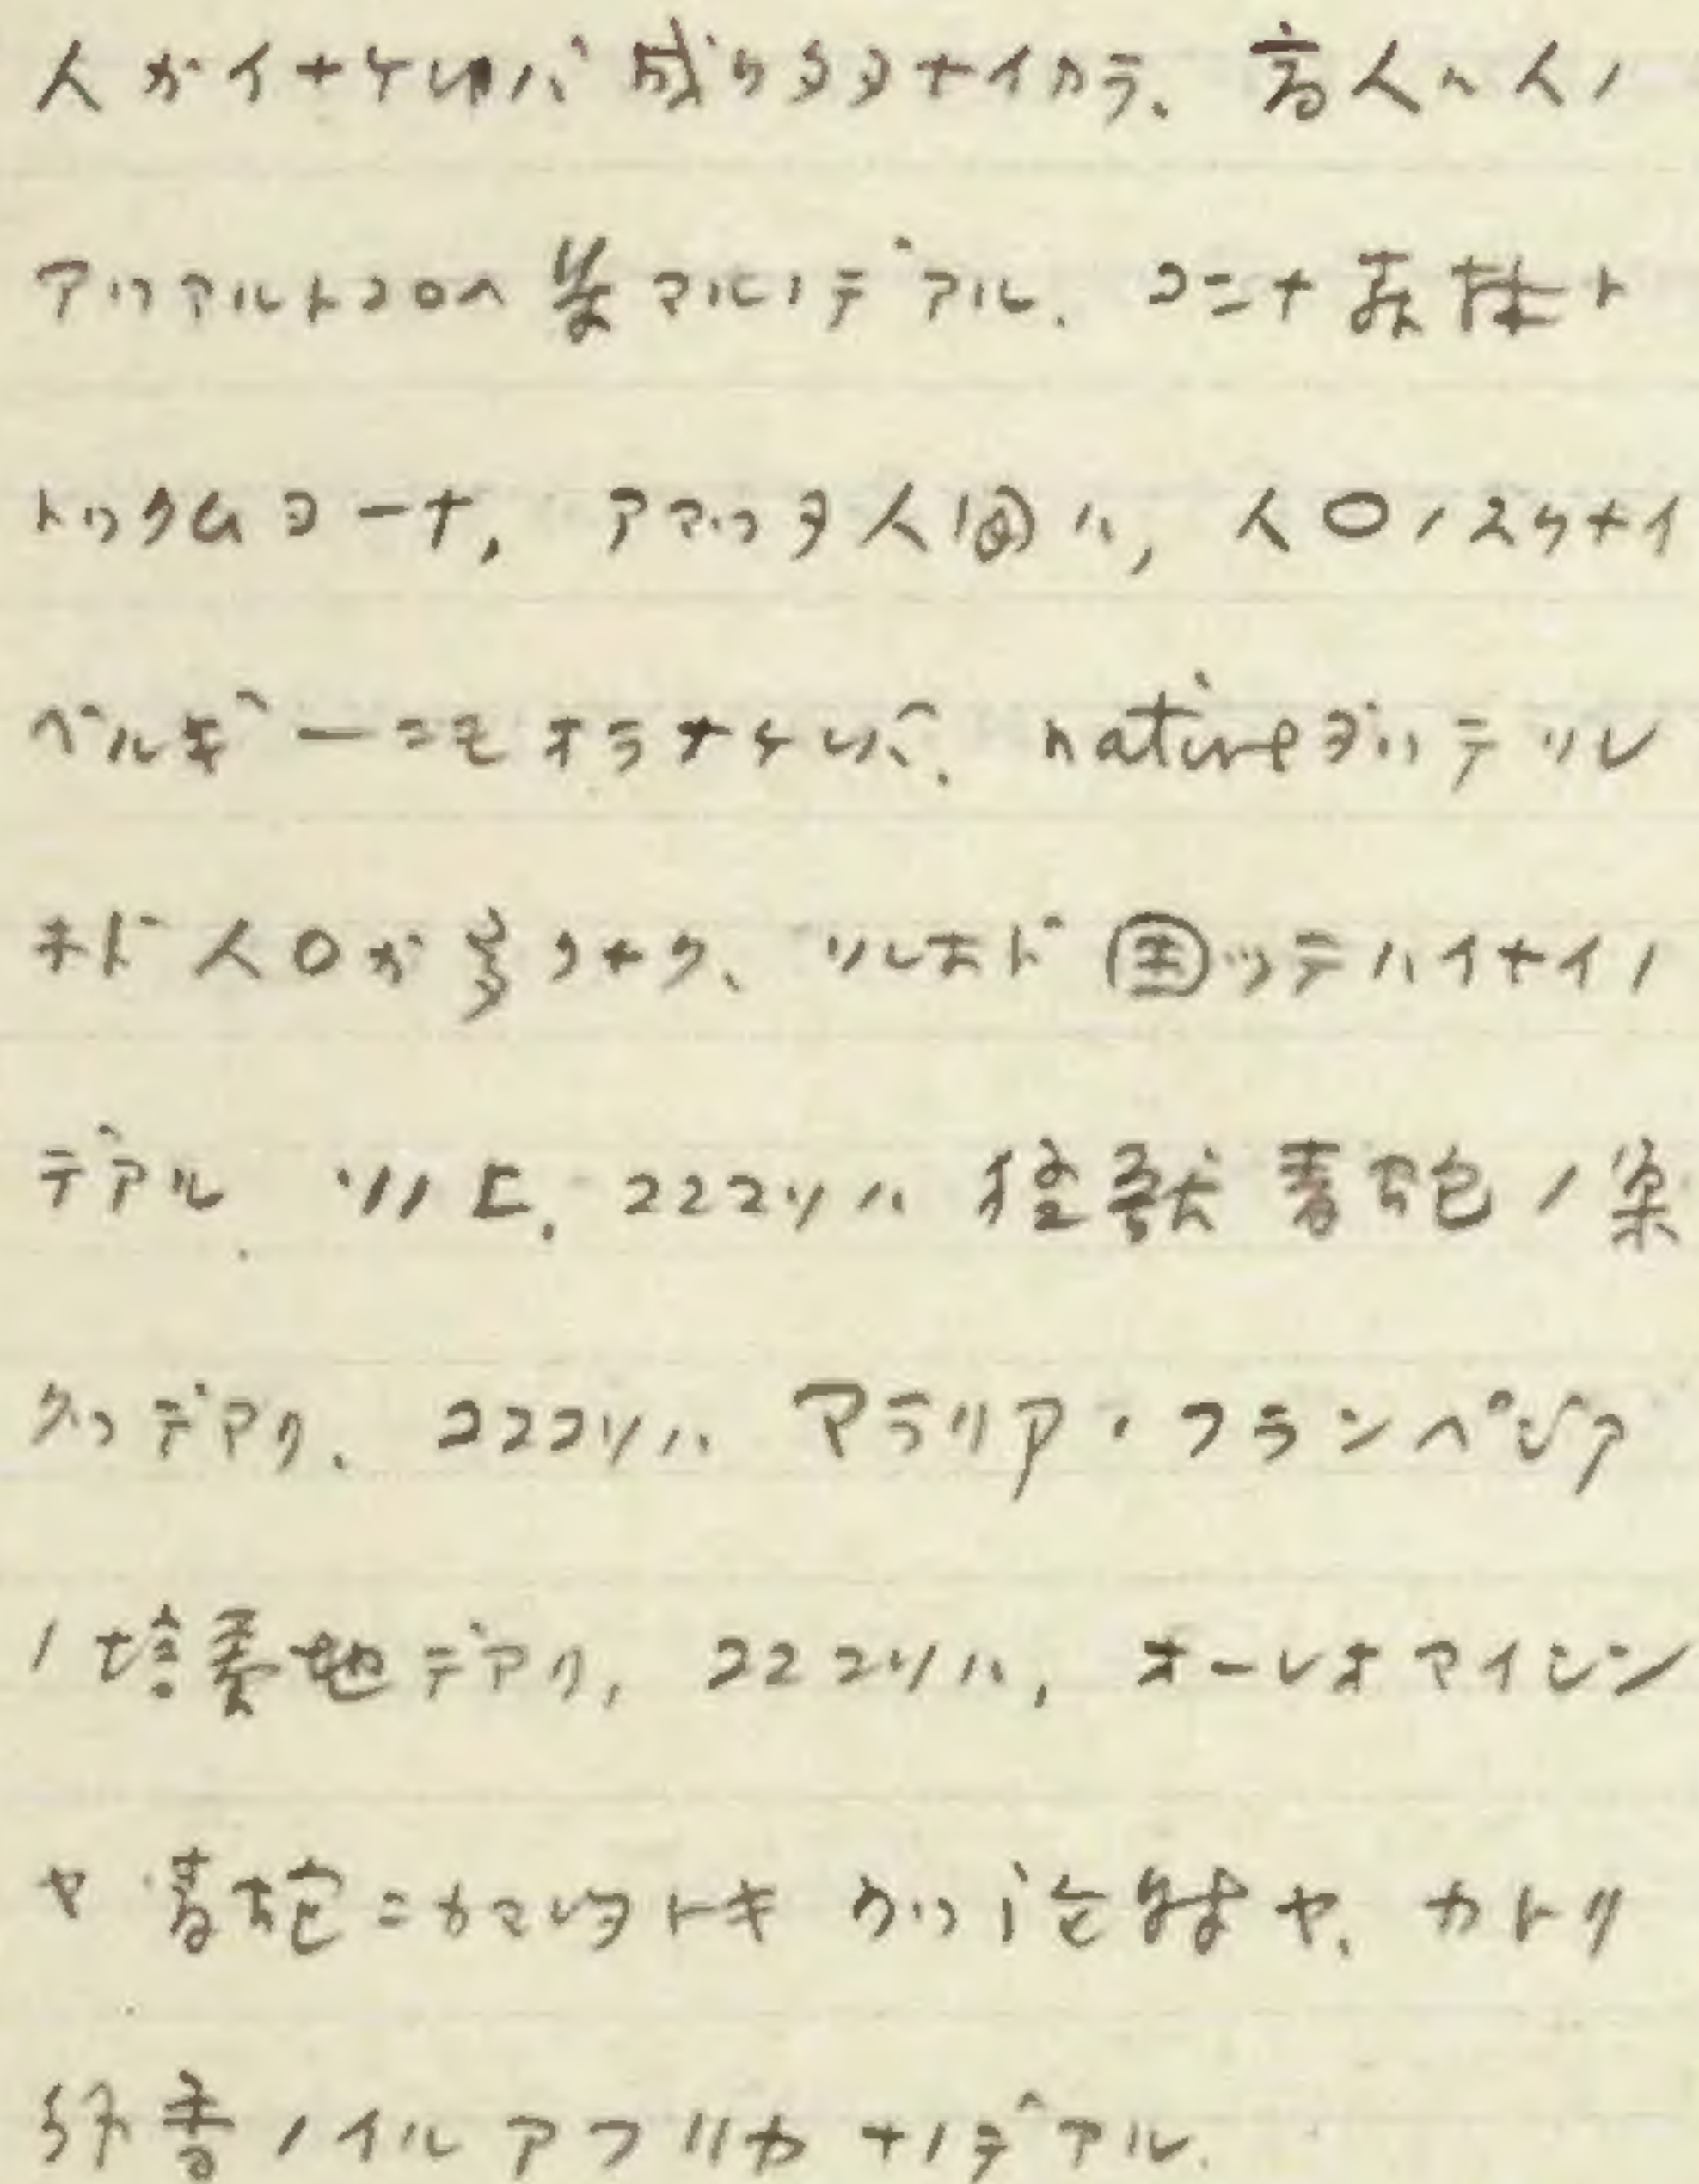 人ガイナケレバ成リタタナイカラ、商人ハ人ノ
アツアルトコロヘ集マルノデアル. コンナ森林ト
トックムヨーナ, アマッタ人間ハ, 人口ノスクナイ
ベルギーニモオラナケレバ、nativeダッテソレ
ホド人口ガ多クナク、ソレホド困ッテハイナイノ
デアル. ソノ上, コココソハ怪獣毒蛇ノ巣
クツデアリ、コココソハマラリア・フランペジア
ノ培養地デアリ, コココソハ, オーレオマイシン
ヤ毒蛇ニカマレタトキウツ注射ヤ、カトリ
線香ノイルアフリカナノデアル.